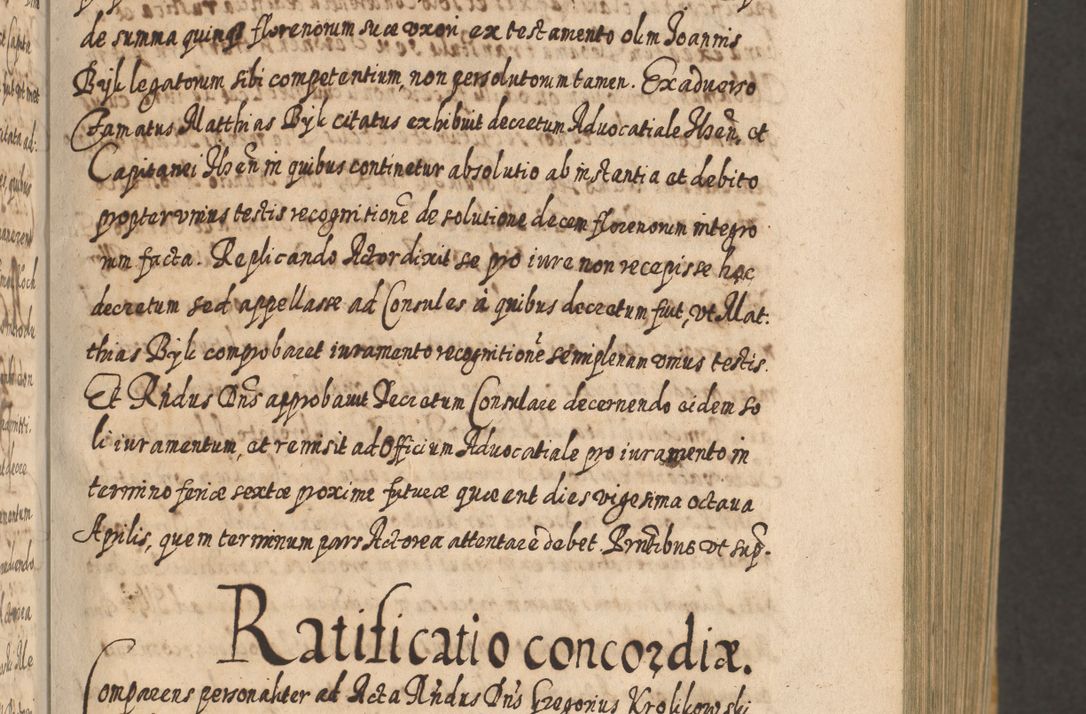 de summa quinq florenorum suæ uxori, ex testamento olim Joannis
Byk legatorum sibi competentium, non persolutorum tamen. Ex adverso
Famatus Matthias Byk citatus exhibuit decretum Advocatiale Ilsen̄, et
Capitanei Ilsen̄ in quibus continetur absolutio ab instantia et debito
propter unius testis recognitionē de solutione decem florenorum integro
rum facta. Replicando Actor dixit se pro iure non recepisse hoc
decretum sed appellasse ad Consules à quibus decretum fuit, ut Mat:
thias Byk comprobaret iuramento recognitionē semiplenam unius testis.
Et Rn̄dus Dn̄s approbavit Decretum Consulare decernendo eidem so
li iuramentum, et remisit ad Officium Advocatiale pro iuramento in
termino feriæ sextæ proxime futuræ quæ erit dies vigesima octava
Aprilis, quem terminum pars Actorea attentare debet. Prn̄tibus ut sup.
Ratificatio concordiæ.
Comparens personaliter ad Acta Rn̄dus Dn̄s Gregorius Krolikowski